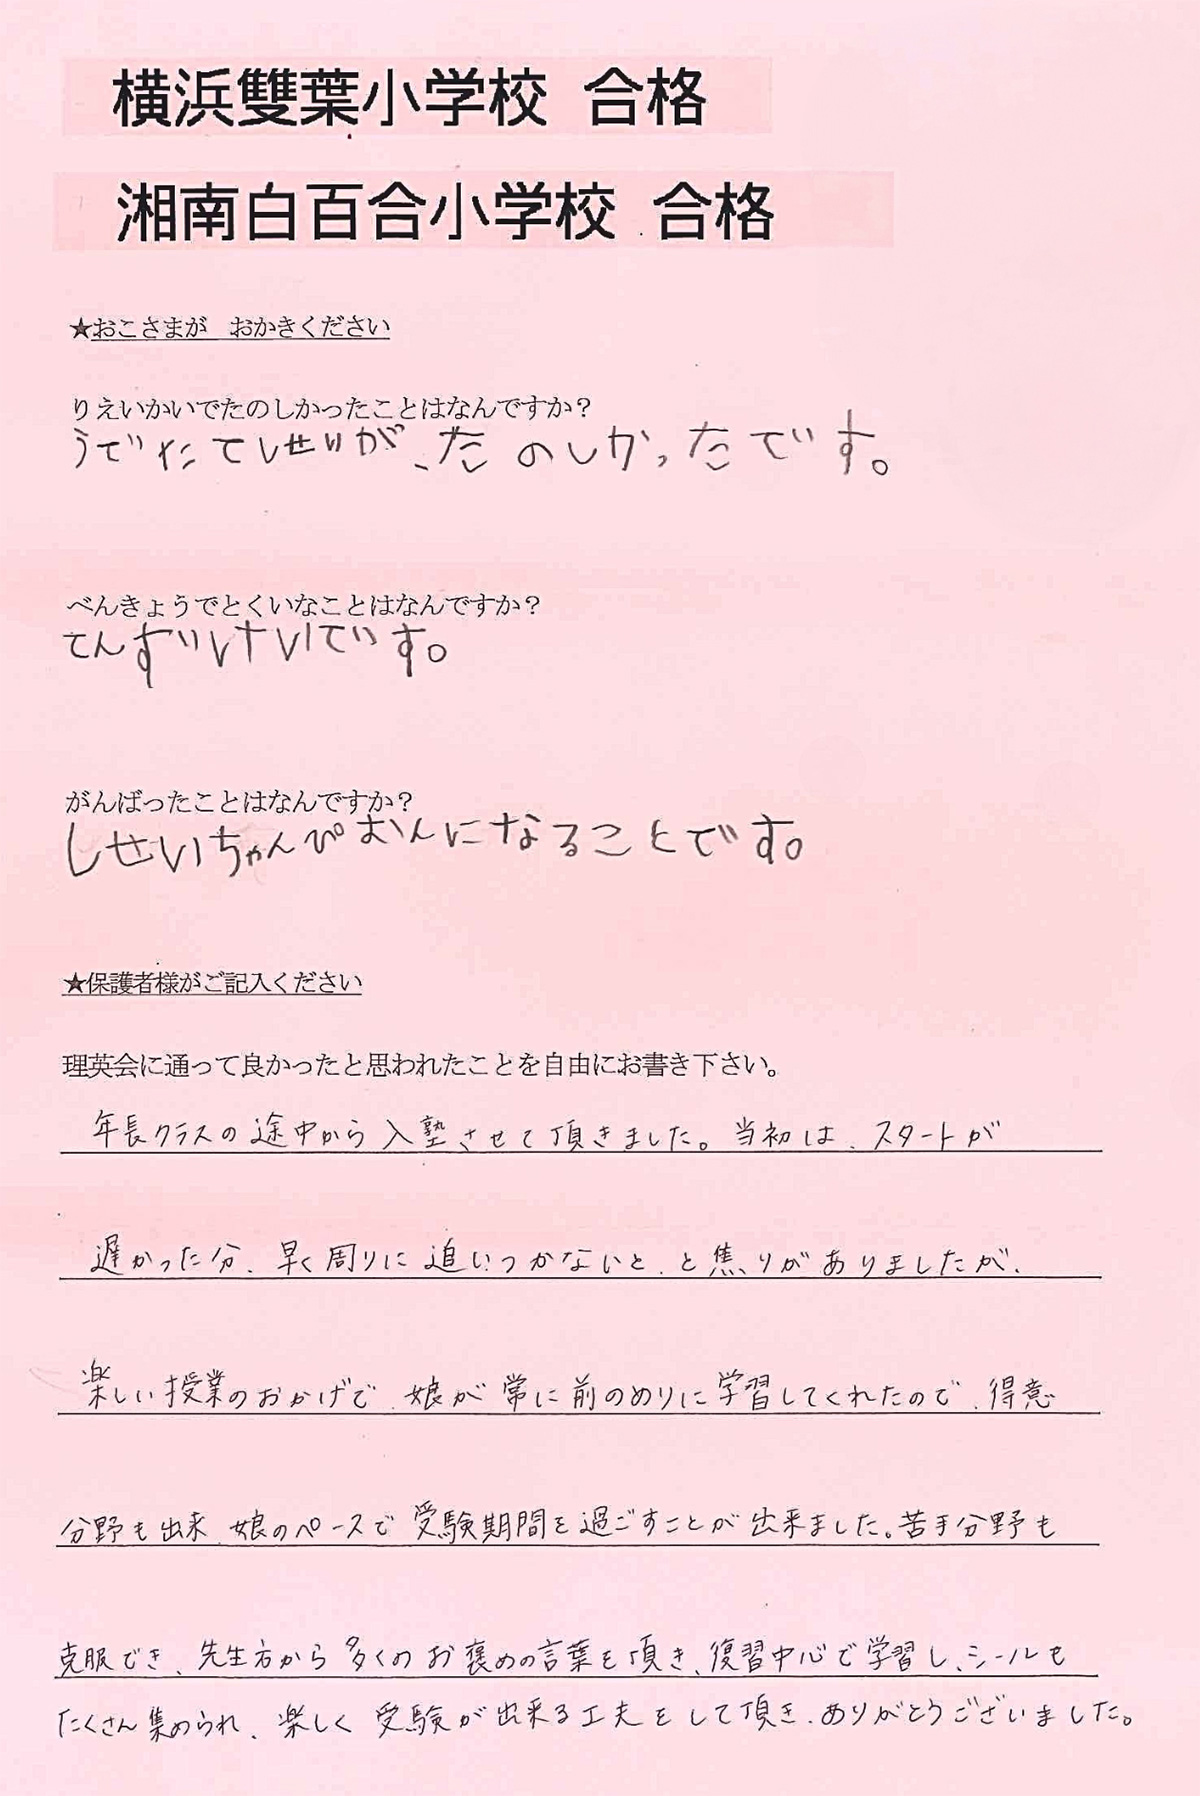 横浜雙葉小学校 合格
湘南白百合小学校 合格
★おこさまが おかきください
りえいかいでたのしかったことはなんですか？
うでたてしせいが、たのしかったです。
べんきょうでとくいなことはなんですか？
てんずいけいです。
がんばったことはなんですか？
しせいちゃんぴおんになることです。
★保護者様がご記入ください
理英会に通って良かったと思われたことを自由にお書き下さい。
年長クラスの途中から入塾させて頂きました。当初は、スタートが
遅かった分、早く周りに追いつかないと、と焦りがありましたが、
楽しい授業のおかげで、娘が常に前のめりに学習してくれたので、得意
分野も出来、娘のペースで受験期間を過ごすことが出来ました。苦手分野も
克服でき、先生方から多くのお褒めの言葉を頂き、復習中心で学習し、シールも
たくさん集められ、楽しく受験が出来る工夫をして頂き、ありがとうございました。